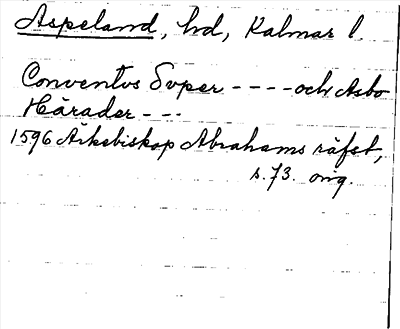 Aspeland, hd, Kalmar l.
Conventvs Svper - - - - och Asbo
Härader - - -
1596 Ärkebiskop Abrahams räfst,
s. 73. orig.